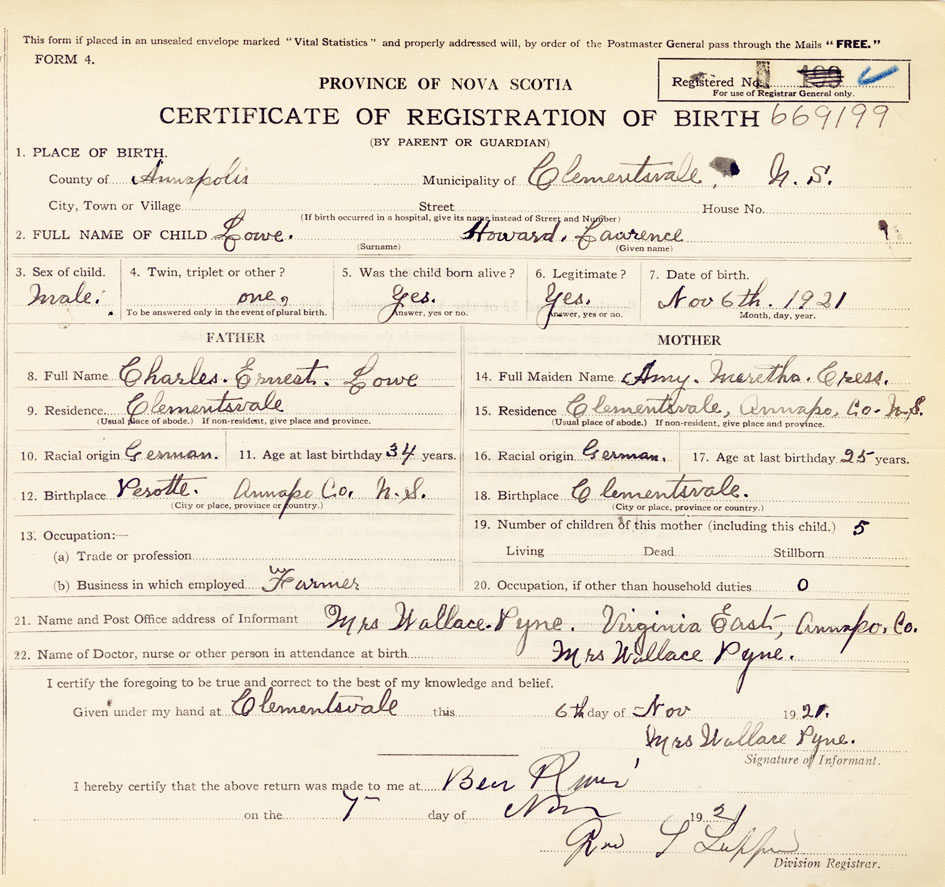 This form if placed in an unsealed envelope marked "Vital Statistics" and properly addressed will, by order of the Postmaster General pass through the Mails "FREE."
FORM 4.
PROVINCE OF NOVA SCOTIA
Registered No.
For use of Registrar General only.
CERTIFICATE OF REGISTRATION OF BIRTH 669199
(BY PARENT OR GUARDIAN)
1. PLACE OF BIRTH.
County of Annapolis Municipality of Clementsvale, N. S.
City, Town or Village Street House No.
(If birth occurred in a hospital, give its name instead of Street and Number)
2. FULL NAME OF CHILD Lowe. Howard. Lawrence
(Surname) (Given name)
3. Sex of child. 4. Twin, triplet or other? 5. Was the child born alive? 6. Legitimate? 7. Date of birth.
Male. one, Yes. Yes. Nov 6th. 1921
To be answered only in the event of plural birth. Answer, yes or no. Answer, yes or no. Month, day, year.
FATHER MOTHER
8. Full Name Charles. Ernest. Lowe 14. Full Maiden Name Amy. Maretha. Cress.
9. Residence Clementsvale 15. Residence Clementsvale, Annapo, Co. N.S.
(Usual place of abode.) If non-resident, give place and province. (Usual place of abode.) If non-resident, give place and province.
10. Racial origin German. 11. Age at last birthday 34 years. 16. Racial origin German. 17. Age at last birthday 25 years.
12. Birthplace Perotte. Annapo Co. N.S. 18. Birthplace Clementsvale.
(City or place, province or country.) (City or place, province or country.)
19. Number of children of this mother (including this child.) 5
13. Occupation:—
(a) Trade or profession Living Dead Stillborn
(b) Business in which employed Farmer 20. Occupation, if other than household duties 0
21. Name and Post Office address of Informant Mrs Wallace Pyne. Virginia East, Annapo. Co.
22. Name of Doctor, nurse or other person in attendance at birth Mrs Wallace Pyne.
I certify the foregoing to be true and correct to the best of my knowledge and belief.
Given under my hand at Clementsvale this 6th day of Nov 1921.
Mrs Wallace Pyne.
Signature of Informant.
I hereby certify that the above return was made to me at Bear River
on the 7 day of Nov 1921
Division Registrar.